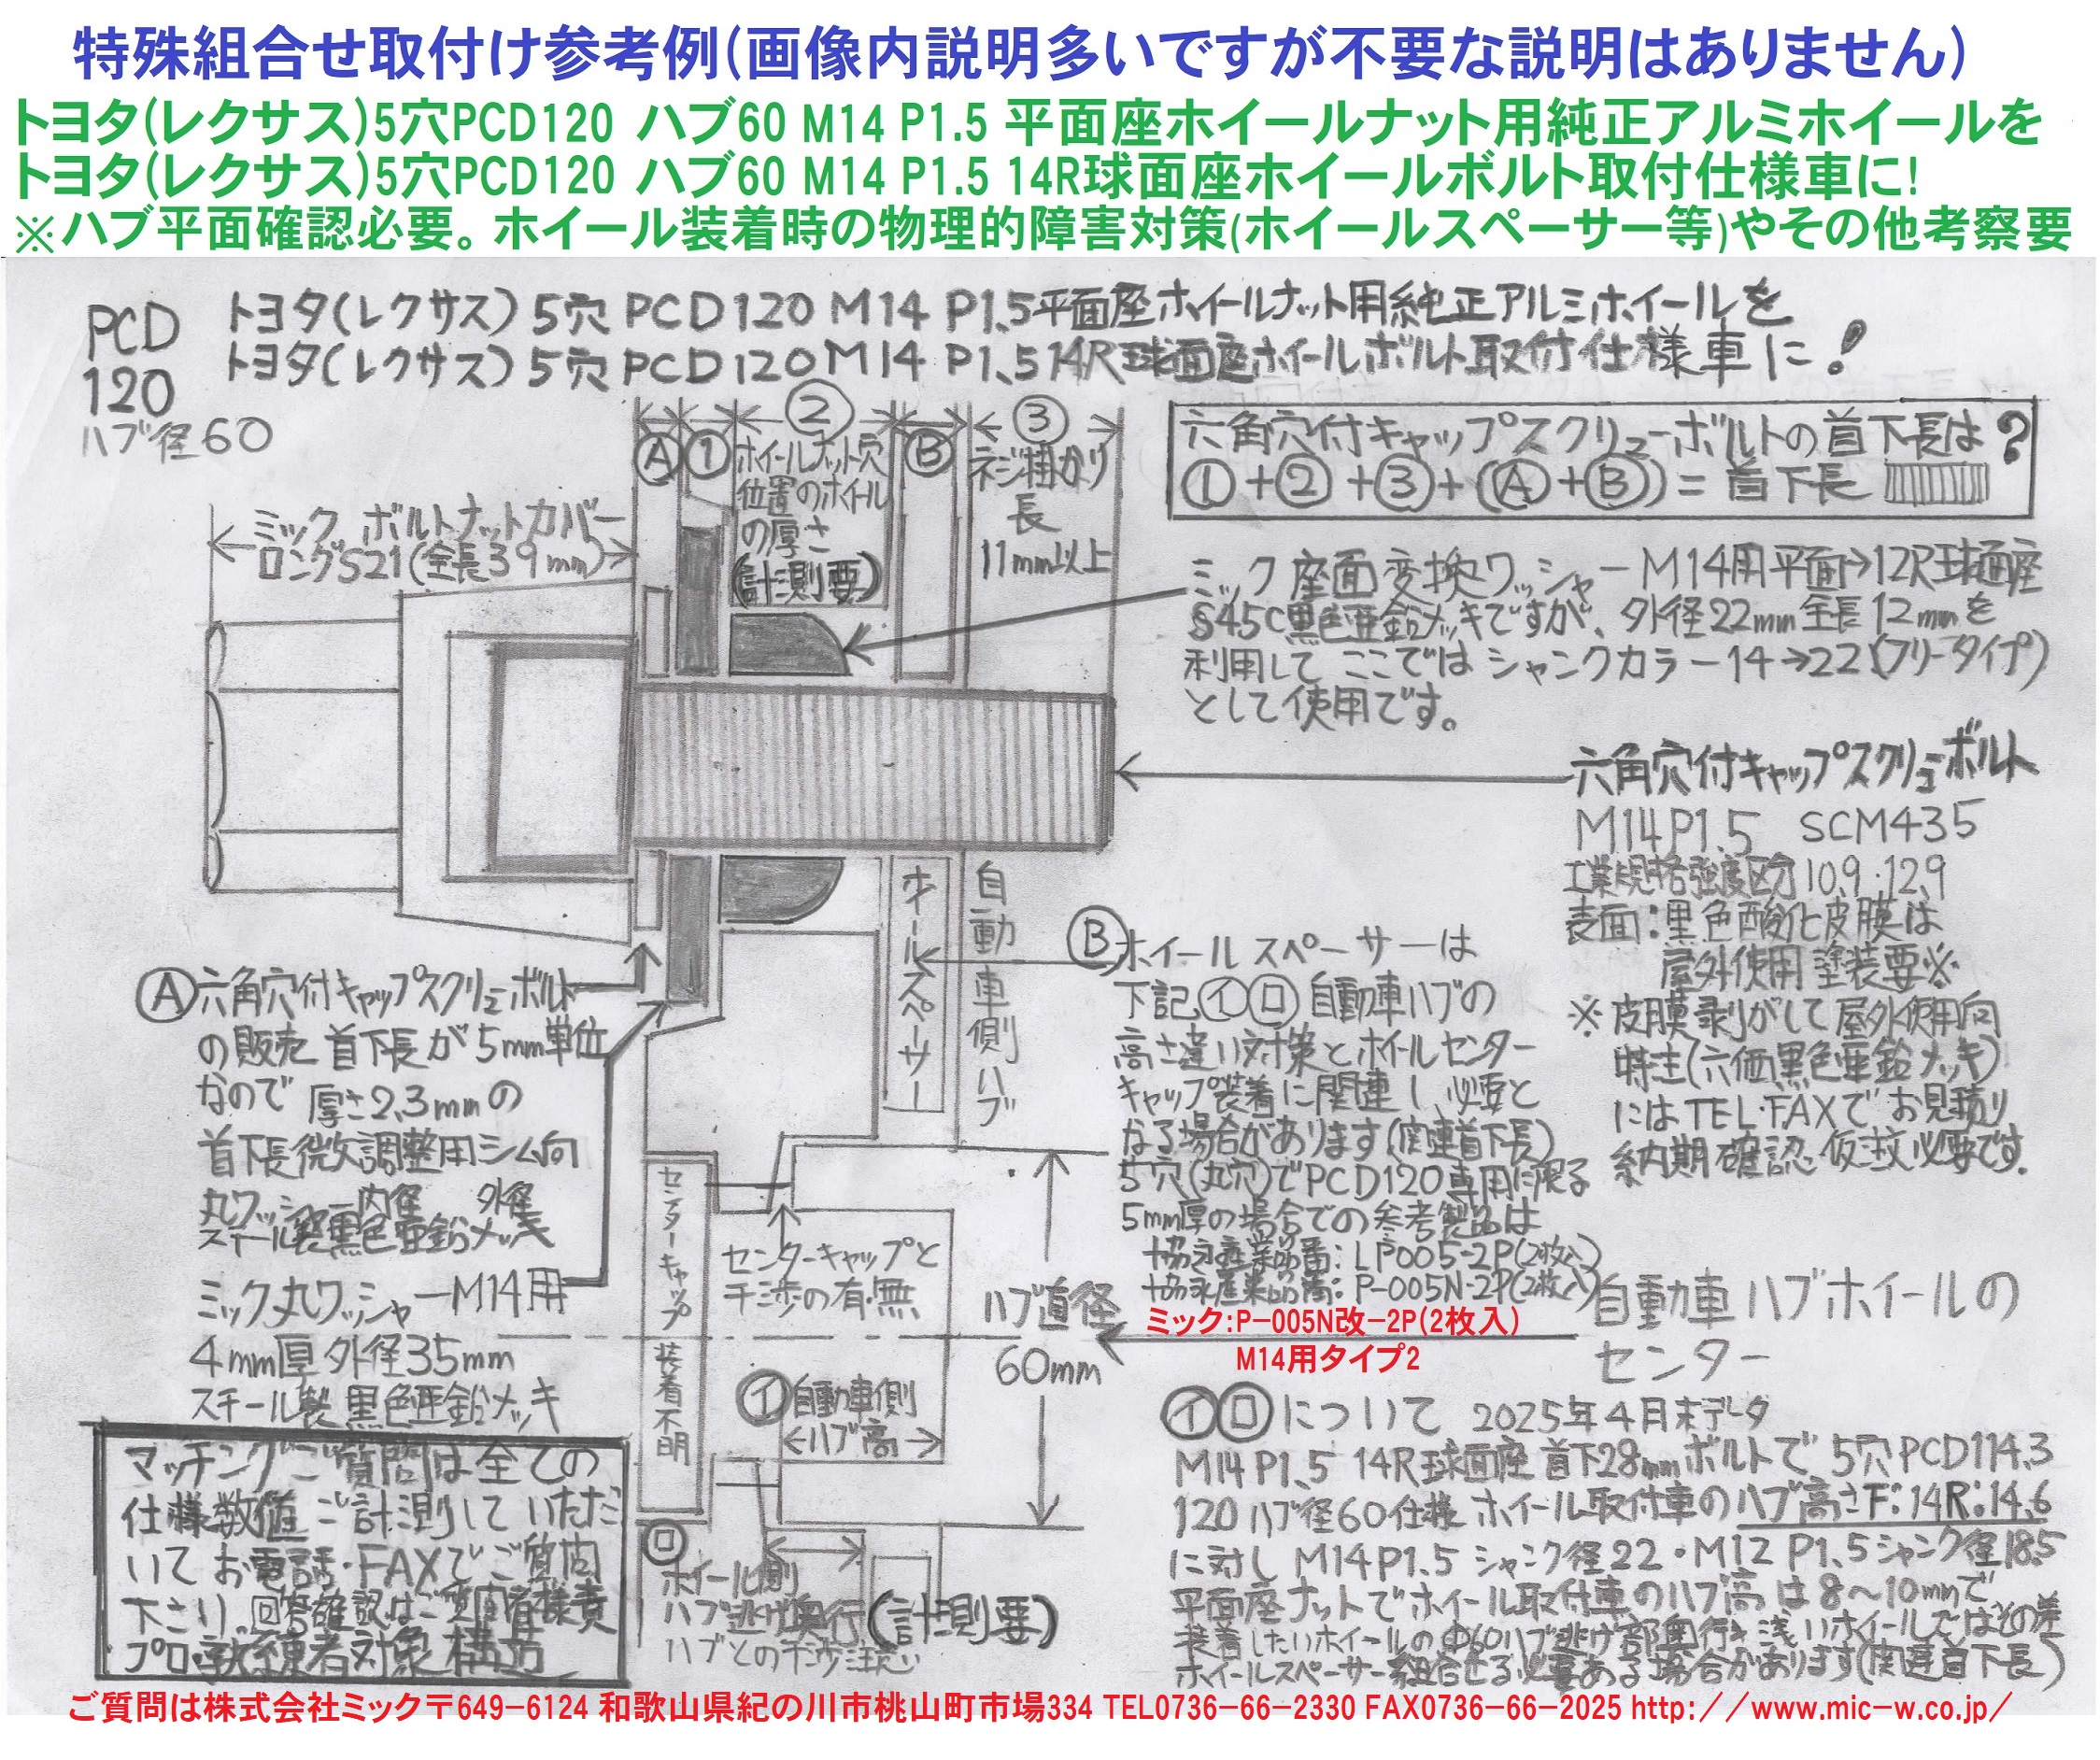 特殊組合せ取付け参考例(画像内説明多いですが不要な説明はありません)
トヨタ(レクサス)5穴PCD120 ハブ60 M14 P1.5 平面座ホイールナット用純正アルミホイールを
トヨタ(レクサス)5穴PCD120 ハブ60 M14 P1.5 14R球面座ホイールボルト取付仕様車に!
※ハブ平面確認必要。ホイール装着時の物理的障害対策(ホイールスペーサー等)やその他考察要
PCD
120
ハブ径60
トヨタ(レクサス)5穴 PCD120 M14 P1.5平面座ホイールナット用純正アルミホイールを
トヨタ(レクサス)5穴 PCD120 M14 P1.5 14R球面座ホイールボルト取付仕様車に!
Ⓐ
①
②
ホイールナット穴
位置のホイール
の厚さ
(計測要)
Ⓑ
③
ネジ掛かり
長
11mm以上
六角穴付キャップスクリューボルトの首下長は?
①+②+③+(Ⓐ+Ⓑ)=首下長
ミック ボルトナットカバー
ロングS21(全長39mm)
ミック座面変換ワッシャーM14用平面→12R球面座
S45C黒色亜鉛メッキですが、外径22mm全長12mmを
利用して ここでは シャンクカラー14→22(フリータイプ)
として使用です。
六角穴付キャップスクリューボルト
M14P1.5 SCM435
工業規格強度区分10.9・12.9
表面:黒色酸化皮膜は
屋外使用塗装要※
※皮膜剥がして屋外使用向
特注(六価黒色亜鉛メッキ)
にはTEL・FAXでお見積り
納期確認 仮注必要です.
ホイールスペーサー
自動車側ハブ
Ⓐ六角穴付キャップスクリューボルト
の販売 首下長が5mm単位
なので 厚さ2.3mmの
首下長微調整用シム向
丸ワッシャー内径 外径
スチール製黒色亜鉛メッキ
ミック丸ワッシャーM14用
4mm厚外径35mm
スチール製黒色亜鉛メッキ
Ⓑホイールスペーサーは
下記㋑㋺自動車ハブの
高さ違い対策とホイールセンター
キャップ装着に関連し、必要と
なる場合があります(関連首下長)
5穴(丸穴)でPCD120専用に限る
5mm厚の場合での参考製品は
協永産業品番:LP005-2P(2枚入)
協永産業品番:P-005N-2P(2枚入)
ミック:P-005N改-2P(2枚入)
M14用タイプ2
センターキャップ 装着不明
センターキャップと
干渉の有・無
ハブ直径
60mm
自動車ハブホイールの
センター
㋑自動車側
ハブ高
㋺
ホイール側
ハブ逃げ奥行(計測要)
ハブとの干渉注意
㋑㋺について 2025年4月末データ
M14P1.5 14R球面座首下28mmボルトで 5穴PCD114.3
120ハブ径60仕様 ホイール取付車のハブ高さF:14 R:14.6
に対し M14P1.5シャンク径22・M12 P1.5シャンク径18.5
平面座ナットでホイール取付車のハブ高は8~10mmで
装着したいホイールのΦ60ハブ逃げ部奥行き浅いホイールではその差
ホイールスペーサー組合せる必要ある場合があります(関連首下長)
マッチングご質問は全ての
仕様数値ご計測していただ
いてお電話・FAXでご質問
下さい。回答確認はご質問者様責
プロ・熟練者対象構方
ご質問は株式会社ミック〒649-6124 和歌山県紀の川市桃山町市場334 TEL0736-66-2330 FAX0736-66-2025 http://www.mic-w.co.jp/